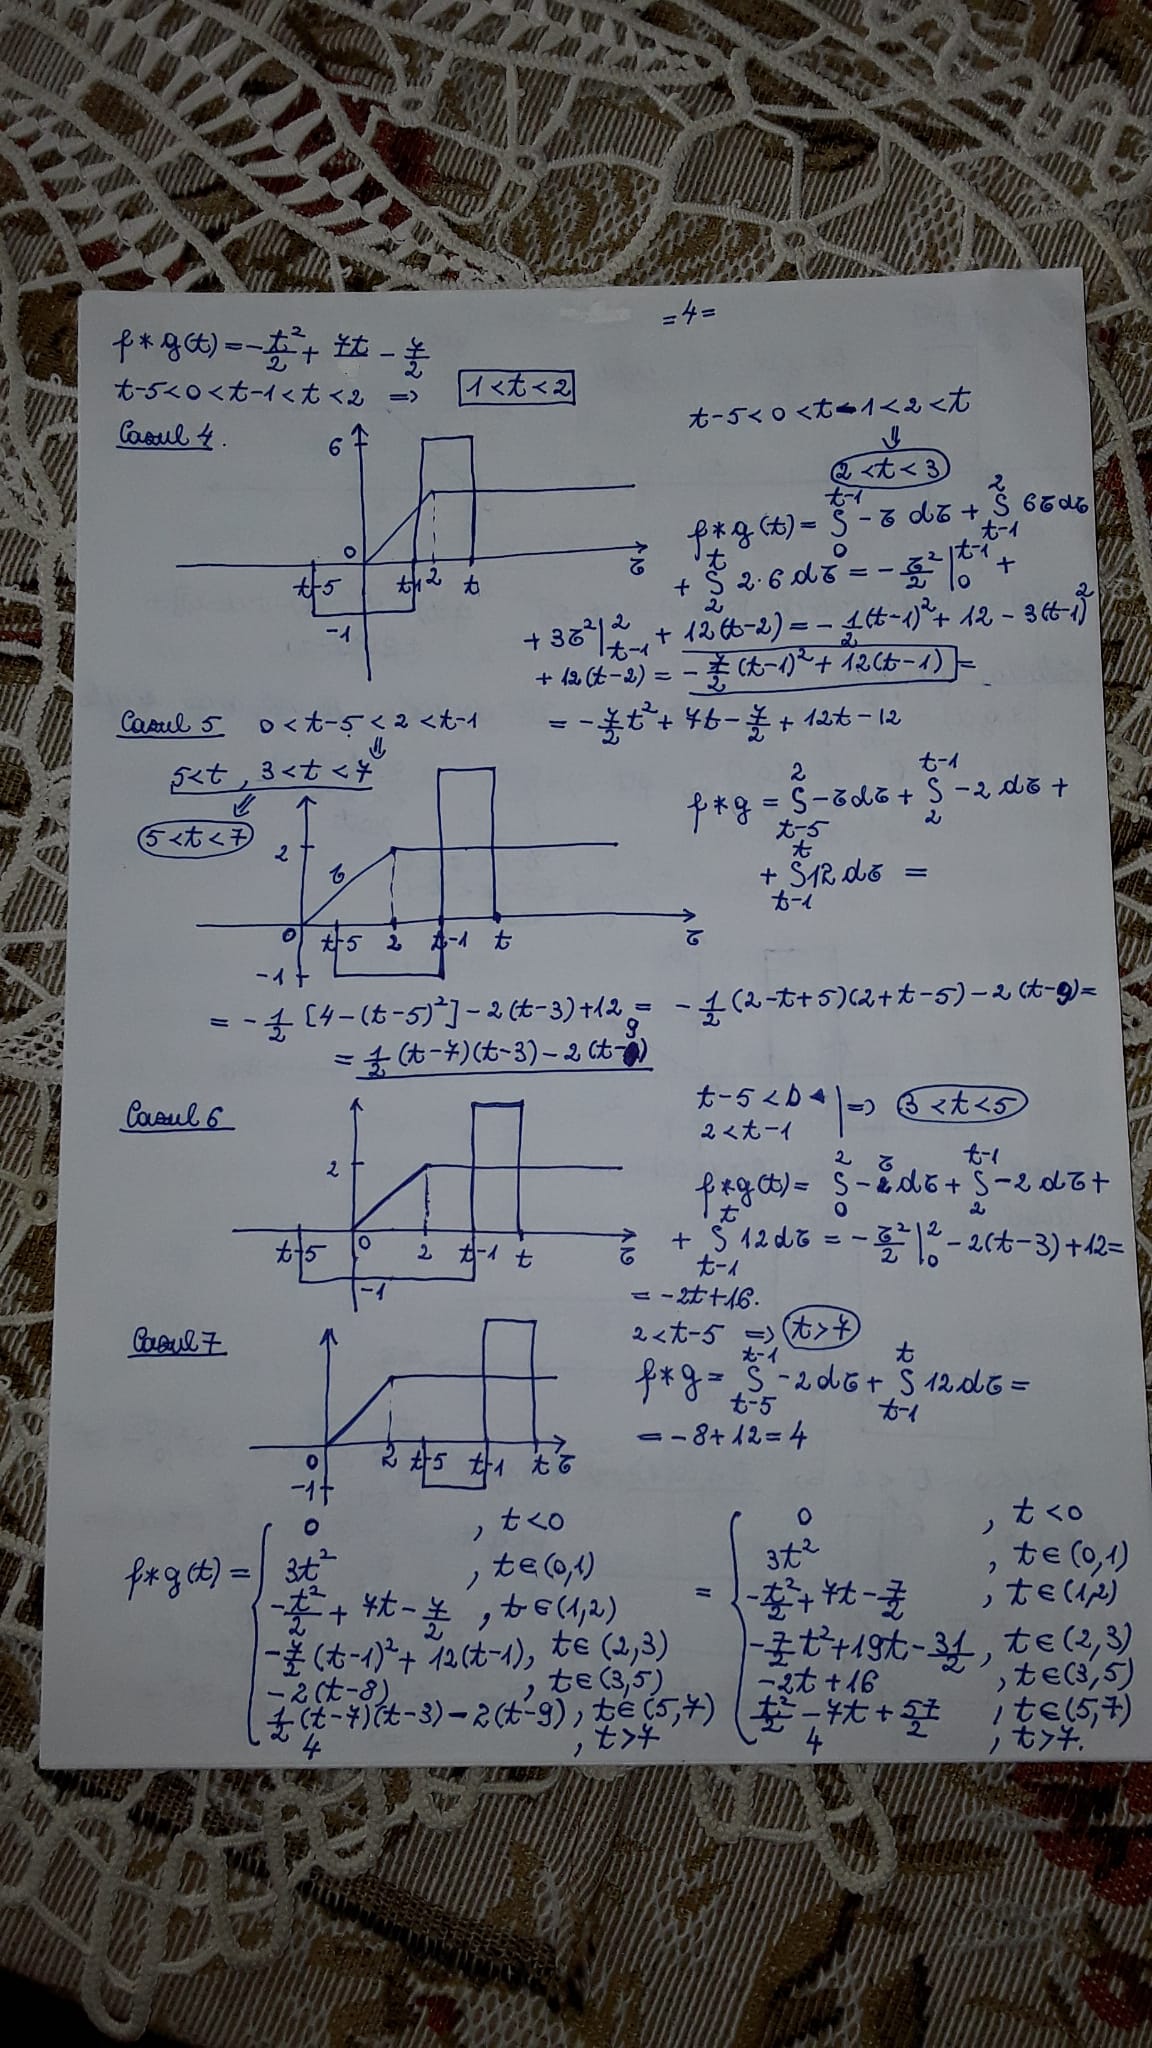 =4=
f*g(t) = -t²/2 + 7t - 7/2
t-5<0<t-1<t<2 => 1<t<2
Cazul 4.
6
0
t-5
t-1
2
t
τ
-1
t-5<0<t-1<2<t
⇓
2<t<3
f*g(t) = ∫₀^(t-1) -τ dτ + ∫_(t-1)^2 6τ dτ
+ ∫₂^t 2·6 dτ = -τ²/2 |₀^(t-1) +
+ 3τ² |_(t-1)^2 + 12(t-2) = -1/2 (t-1)² + 12 - 3(t-1)²
+ 12(t-2) = -7/2 (t-1)² + 12(t-1) =
= -7/2 t² + 7t - 7/2 + 12t - 12
Cazul 5 0<t-5<2<t-1
⇓
5<t, 3<t<7
⇓
5<t<7
2
τ
0
t-5
2
t-1
t
τ
-1
f*g = ∫_(t-5)^2 -τ dτ + ∫₂^(t-1) -2 dτ +
+ ∫_(t-1)^t 12 dτ =
= -1/2 [4-(t-5)²] - 2(t-3) + 12 = -1/2 (2-t+5)(2+t-5) - 2(t-9) =
= 1/2 (t-7)(t-3) - 2(t-9)
Cazul 6
2
t-5
0
2
t-1
t
τ
-1
t-5<0
2<t-1 | => 3<t<5
f*g(t) = ∫₀^2 -τ dτ + ∫₂^(t-1) -2 dτ +
+ ∫_(t-1)^t 12 dτ = -τ²/2 |₀² - 2(t-3) + 12 =
= -2t+16.
Cazul 7
0
2
t-5
t-1
t
τ
-1
2<t-5 => t>7
f*g = ∫_(t-5)^(t-1) -2 dτ + ∫_(t-1)^t 12 dτ =
= -8+12 = 4
f*g(t) = { 0, t<0
3t², t∈(0,1)
-t²/2 + 7t - 7/2, t∈(1,2)
-7/2 (t-1)² + 12(t-1), t∈(2,3)
-2(t-8), t∈(3,5)
1/2 (t-7)(t-3) - 2(t-9), t∈(5,7)
4, t>7
= { 0, t<0
3t², t∈(0,1)
-t²/2 + 7t - 7/2, t∈(1,2)
-7/2 t² + 19t - 31/2, t∈(2,3)
-2t+16, t∈(3,5)
t²/2 - 7t + 57/2, t∈(5,7)
4, t>7.